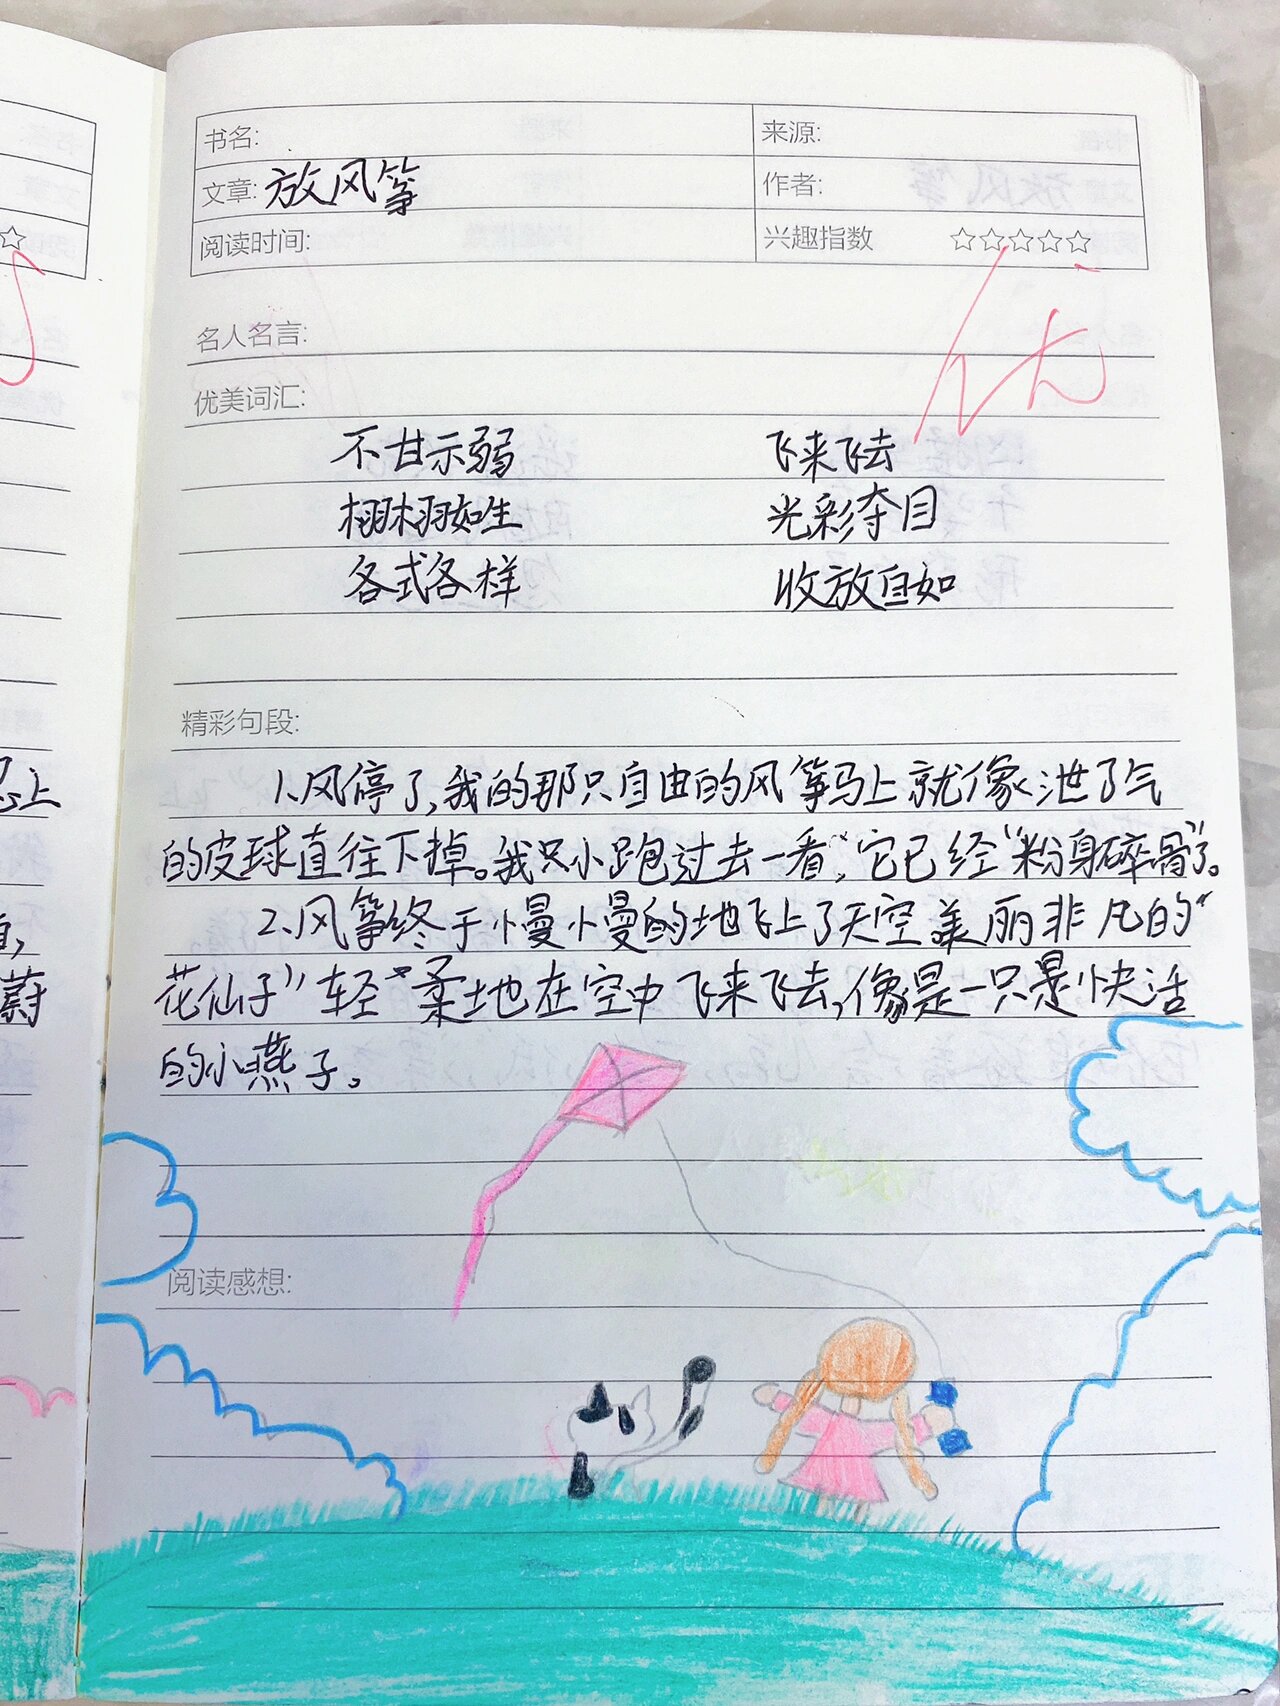 书名:
来源:
文章:放风筝
作者:
阅读时间:
兴趣指数 ☆☆☆☆☆
优
名人名言:
优美词汇:
不甘示弱 飞来飞去
栩栩如生 光彩夺目
各式各样 收放自如
精彩句段:
1.风停了,我的那只自由的风筝马上就像泄了气
的皮球直往下掉。我只小跑过去一看,它已经“粉身碎骨”了。
2.风筝终于慢慢的地飞上了天空美丽非凡的“
花仙子”轻柔地在空中飞来飞去,像是一只是快活
的小燕子。
阅读感想:
上
蔚